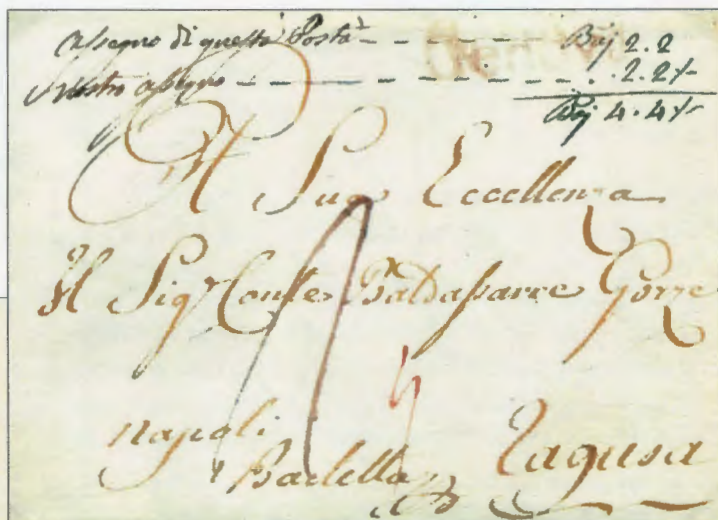 Assegno di questa Posta - - - - - Baj 2.2
Nostro assegno - - - - - - - - . 2.2½
Baj 4.4½
A Sua Eccellenza
Il Sigr Conte Baldassarre
Napoli
Barletta Ragusa